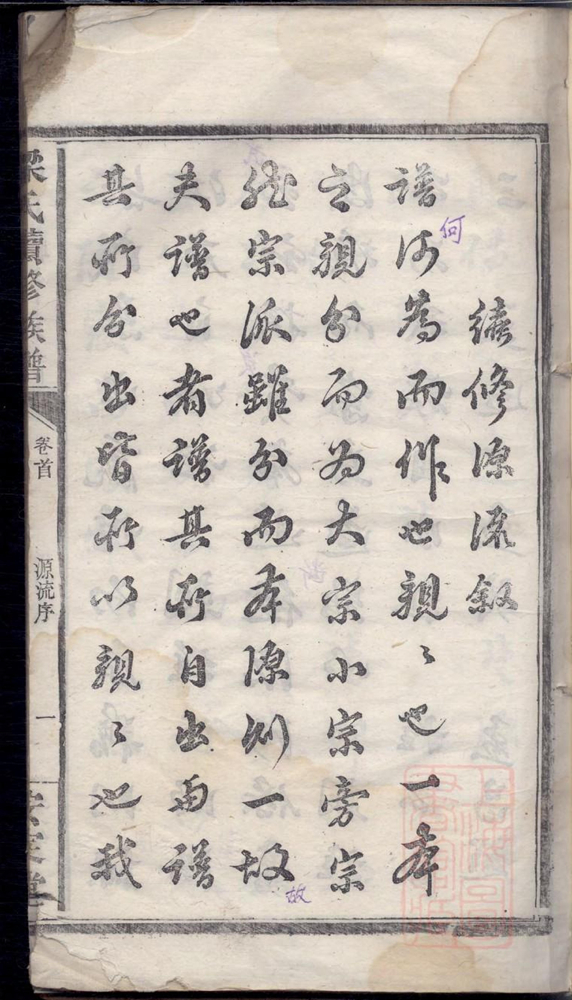 續修源流叙
譜何為而作也親〻也一本
之親分而為大宗小宗旁宗
然宗派雖分而本源則一故
夫譜也者譜其所自出與譜
其所分出皆所以親〻也我
何
故
梁氏續修族譜
卷首
源流序
一